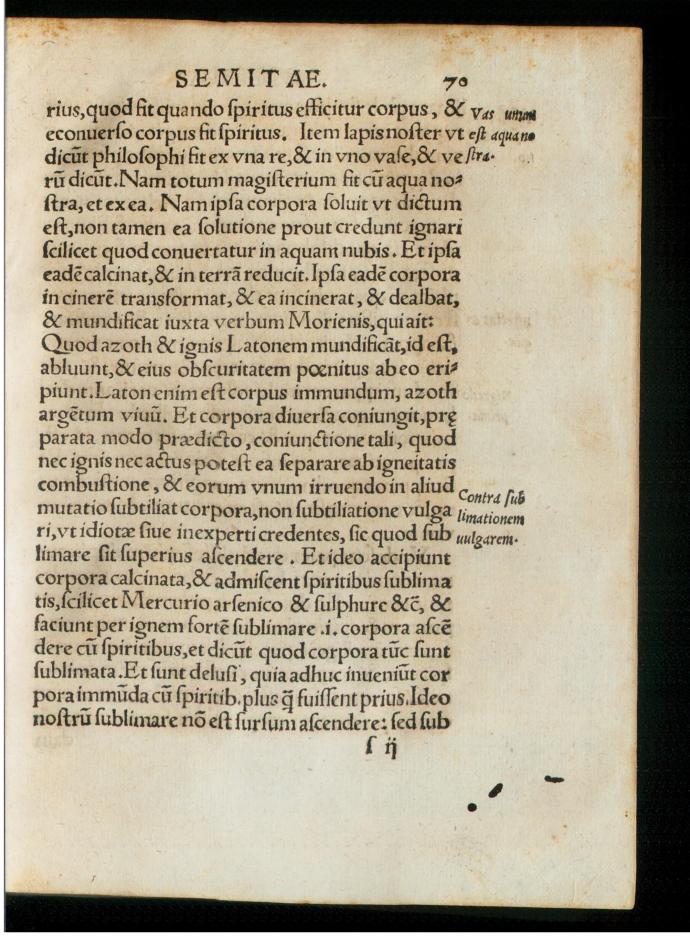 SEMITAE. 70
rius,quod fit quando ſpiritus efficitur corpus, &
econuerſo corpus fit ſpiritus. Item lapis noſter vt
dicũt philoſophi fit ex vna re,& in vno vaſe,& ve
rũ dicũt.Nam totum magiſterium fit cũ aqua no⸗
ſtra, et ex ea. Nam ipſa corpora ſoluit vt dictum
eſt,non tamen ea ſolutione prout credunt ignari
ſcilicet quod conuertatur in aquam nubis. Et ipſa
eadẽ calcinat,& in terrã reducit.Ipſa eadẽ corpora
in cinerẽ transformat, & ea incinerat, & dealbat,
& mundificat iuxta verbum Morienis,qui ait:
Quod azoth & ignis Latonem mundificãt,id eſt,
abluunt,& eius obſcuritatem pœnitus ab eo eri⸗
piunt.Laton enim eſt corpus immundum, azoth
argẽtum viuũ. Et corpora diuerſa coniungit,prę
parata modo prædicto, coniunctione tali, quod
nec ignis nec actus poteſt ea ſeparare ab igneitatis
combuſtione, & eorum vnum irruendo in aliud
mutatio ſubtiliat corpora,non ſubtiliatione vulga
ri,vt idiotæ ſiue inexperti credentes, ſic quod ſub
limare ſit ſuperius aſcendere. Et ideo accipiunt
corpora calcinata,& admiſcent ſpiritibus ſublima
tis,ſcilicet Mercurio arſenico & ſulphure &c̃, &
faciunt per ignem fortẽ ſublimare .i. corpora aſcẽ
dere cũ ſpiritibus,et dicũt quod corpora tũc ſunt
ſublimata.Et ſunt deluſi, quia adhuc inueniũt cor
pora immũda cũ ſpiritib.plus q̃ fuiſſent prius.Ideo
noſtrũ ſublimare nõ eſt ſurſum aſcendere: ſed ſub
ſ ij
Vas unum
eſt aqua no
ſtra.
Contra ſub
limationem
uulgarem.